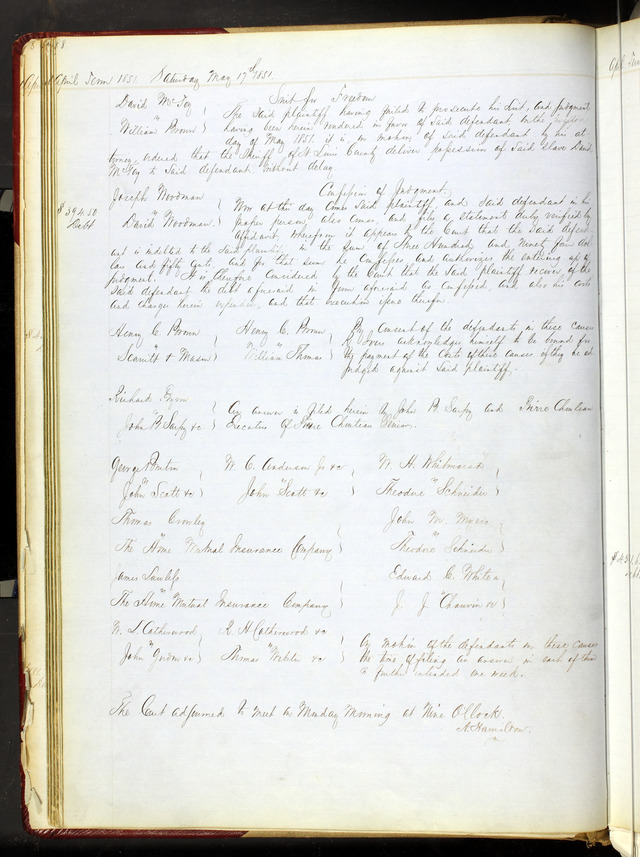 April Term 1851. Saturday May 17th 1851.
David McFoy } Suit for Freedom
The said plaintiff having failed to prosecute his suit, and judgment
William Brown } having been herein rendered in favor of said defendant on the
day of May 1851 it is on motion of said defendant by his at
torney, ordered that the Sheriff of St Louis County deliver possession of said slave David
McFoy to said defendant without delay
Joseph Woodman } Confession of Judgment
$394.50 Now at this day comes said plaintiff, and said defendant in his
Debt David Woodman. } proper person, also comes, and files a statement duly verified by
affidavit, wherefrom it appears to the Court that the said defend
ant is indebted to the said plaintiff in the sum of Three Hundred and Ninety four dol
lars and fifty cents, and for that sum he confesses and authorizes the entering up of
judgment. It is therefore considered by the Court that the said plaintiff recover of the
said defendant the debt aforesaid in form aforesaid as confessed, and also his costs
and charges herein expended, and that execution issue therefor.
Henry C. Brown } Henry C. Brown } By consent of the defendants in these causes
acknowledges himself to be bound for
& Mason } William Thomas } the payment of the costs of these causes if they be ad
judged against said plaintiff.
Richard
John B Sarpy &c } An answer is filed herein by John B. Sarpy and Pierre Chouteau
Executors of Pierre Chouteau Senior.
George } W. C. Anderson Jr &c } W. H. Whitmore }
John Scott &c } John Scott &c } Theodore Schneider }
Thomas Crowley } John M. Myers }
The Home Mutual Insurance Company } Theodore Schneider }
James } Edward C. White }
The Home Mutual Insurance Company } J. J. Chauvin &c }
W. L Catherwood } R. H Catherwood &c } On motion of the defendants in these causes
John &c } Thomas Webster &c } the time of filing an answer in each of them
is further extended one week.
The Court adjourned to meet on Monday Morning at Nine OClock.
A. Hamilton